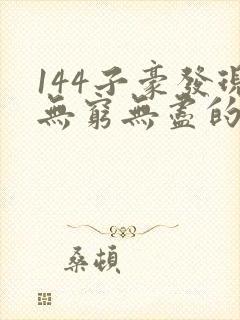 144子豪發現
無窮無盡的
桑頓